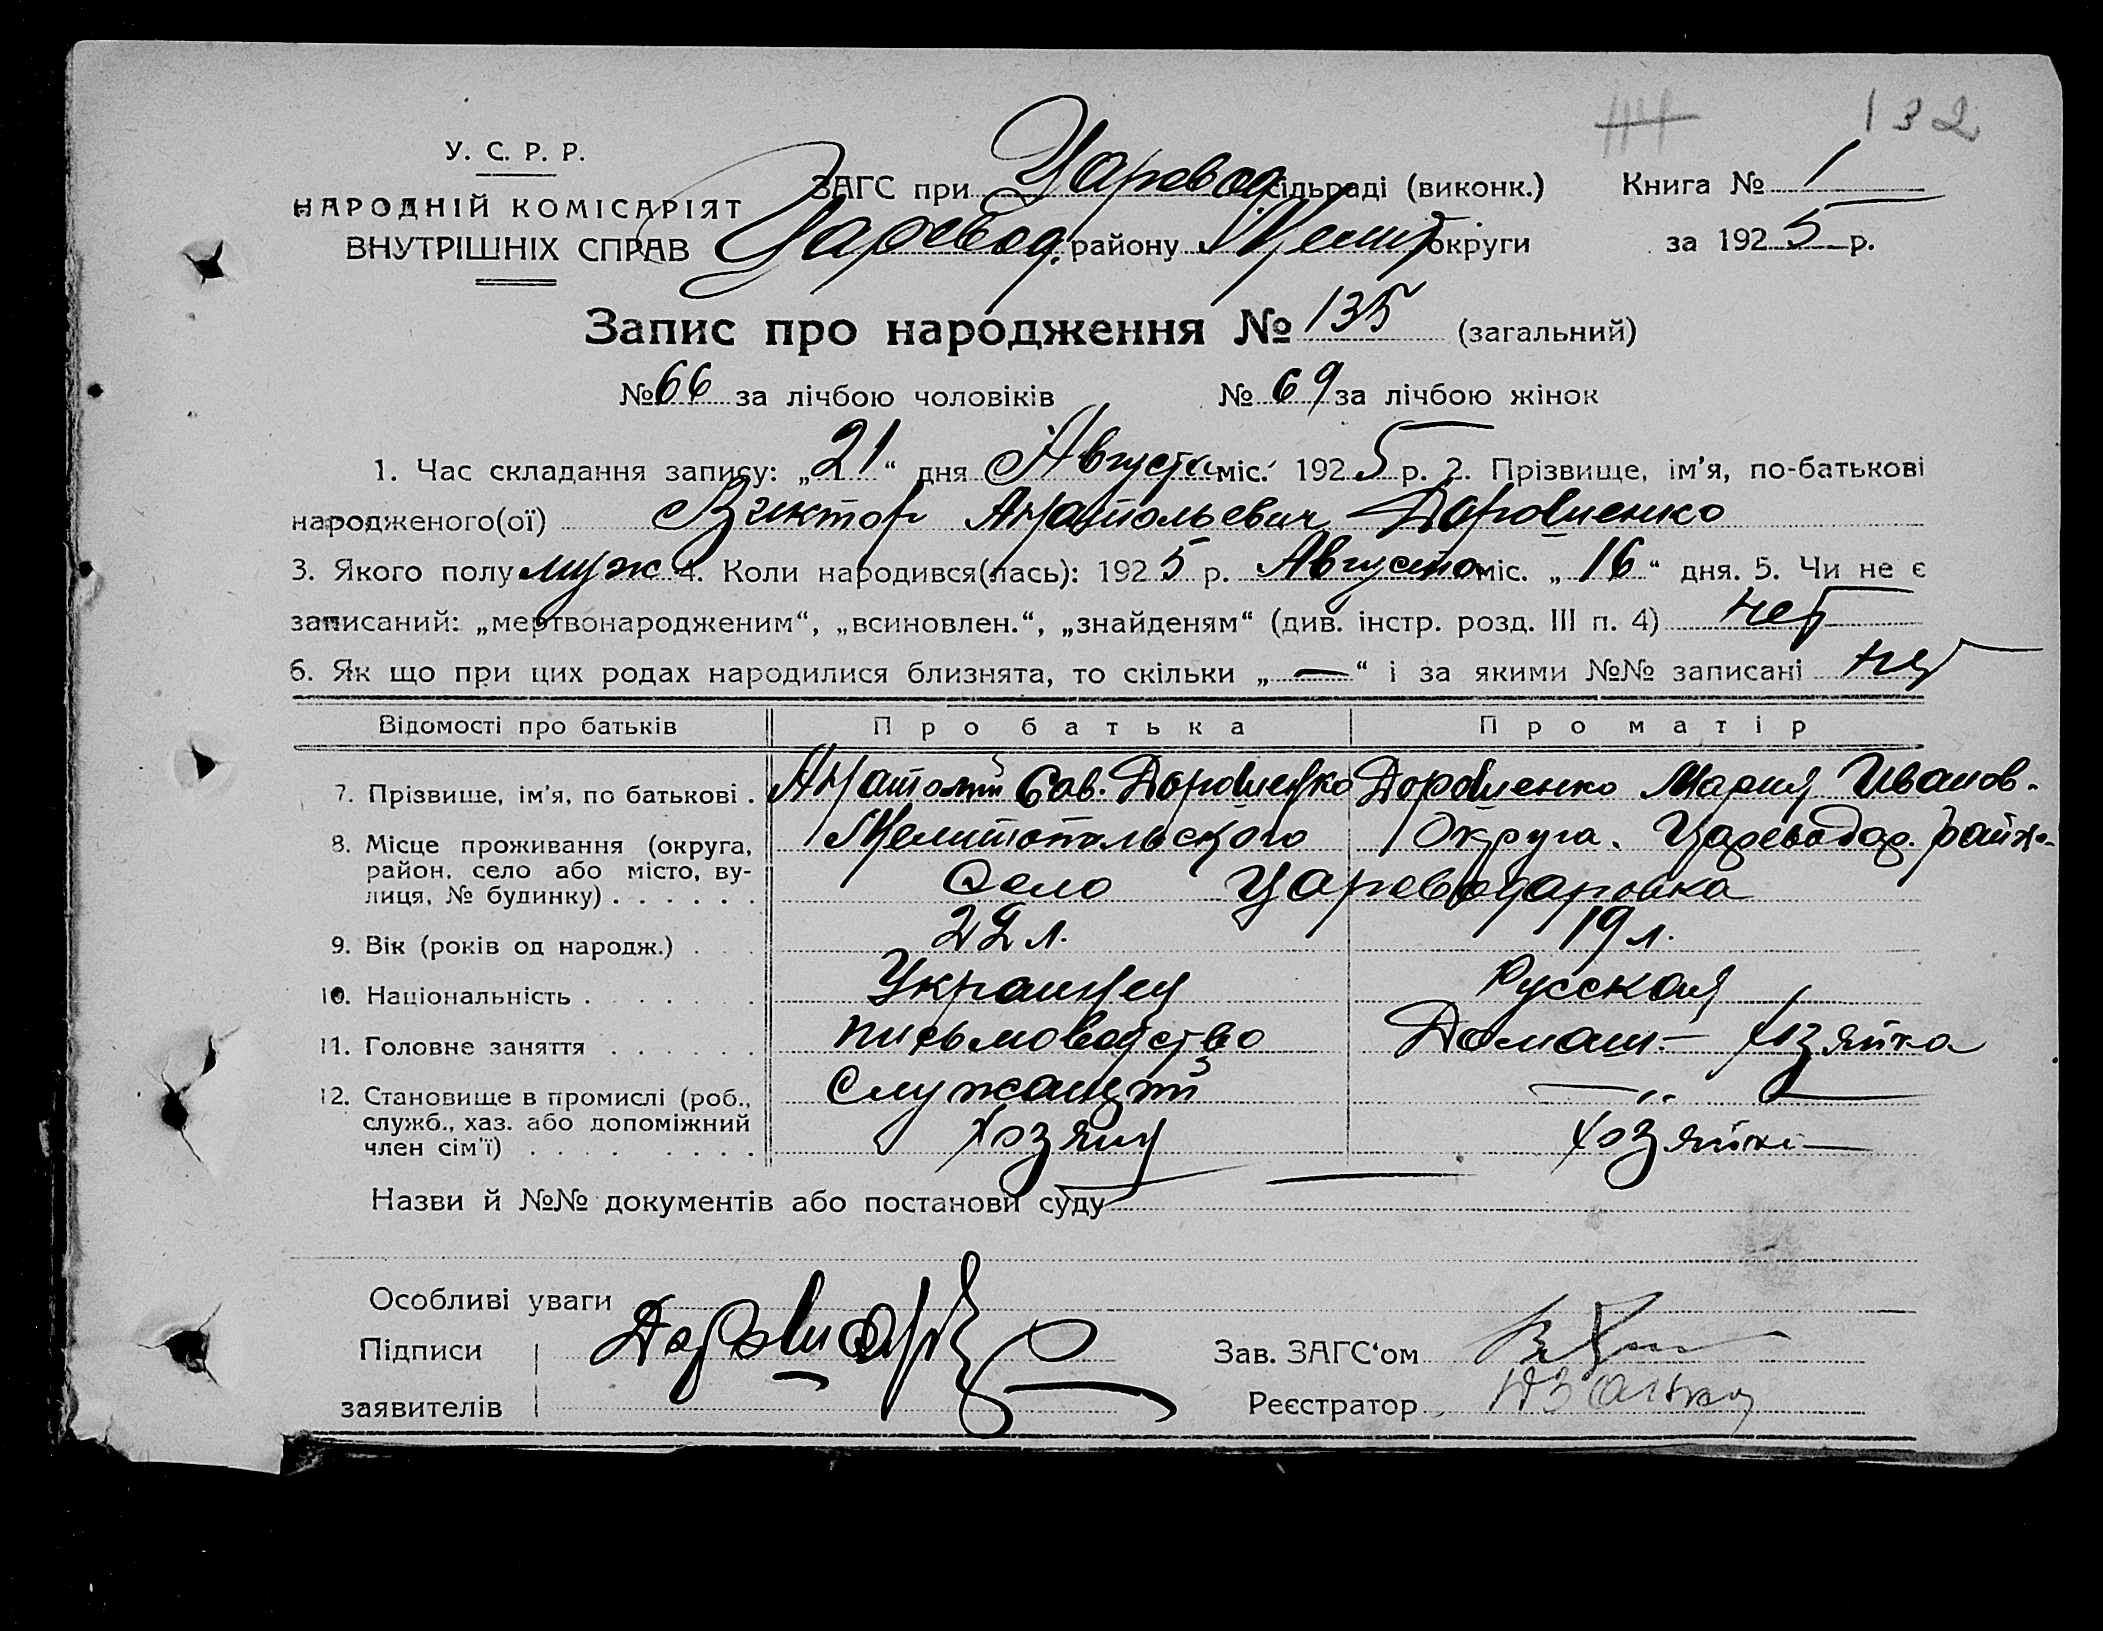 114 132
У. С. Р. Р.
НАРОДНІЙ КОМІСАРІЯТ
ВНУТРІШНІХ СПРАВ
ЗАГС при Царевод сільраді (виконк.) Книга № 1
Царевод. району Мелит округи за 1925 р.
Запис про народження № 135 (загальний)
№ 66 за лічбою чоловіків № 69 за лічбою жінок
1. Час складання запису: „21“ дня Августа міс. 1925 р. 2. Прізвище, ім’я, по-батькові
народженого(ої) Виктор Анатольевич Дорошенко
3. Якого полу муж 4. Коли народився(лась): 1925 р. Августа міс. „16“ дня. 5. Чи не є
записаний: „мертвонародженим“, „всиновлен.“, „знайденям“ (див. інстр. розд. III п. 4) нет
6. Як що при цих родах народилися близнята, то скільки „—“ і за якими №№ записані нет
Відомості про батьків Про батька Про матір
7. Прізвище, ім’я, по батькові . Анатолий Сав. Дорошенко Дорошенко Мария Иванов.
8. Місце проживання (округа, Мелитопольского Округа. Цареводар. района
район, село або місто, ву-
лиця, № будинку) . . . . . . Село Цареводаровка
9. Вік (років од народж.) . . . 22 л. 19 л.
10. Національність . . . . . . . Украинец Русская
11. Головне заняття . . . . . . письмоводство Домаш— хозяйка
12. Становище в промислі (роб., Служащий — " —
служб., хаз. або допоміжний
член сім’ї) . . . . . . . . хозяин хозяйка
Назви й №№ документів або постанови суду
Особливі уваги
Підписи
заявителів
Зав. ЗАГС‘ом
Реєстратор